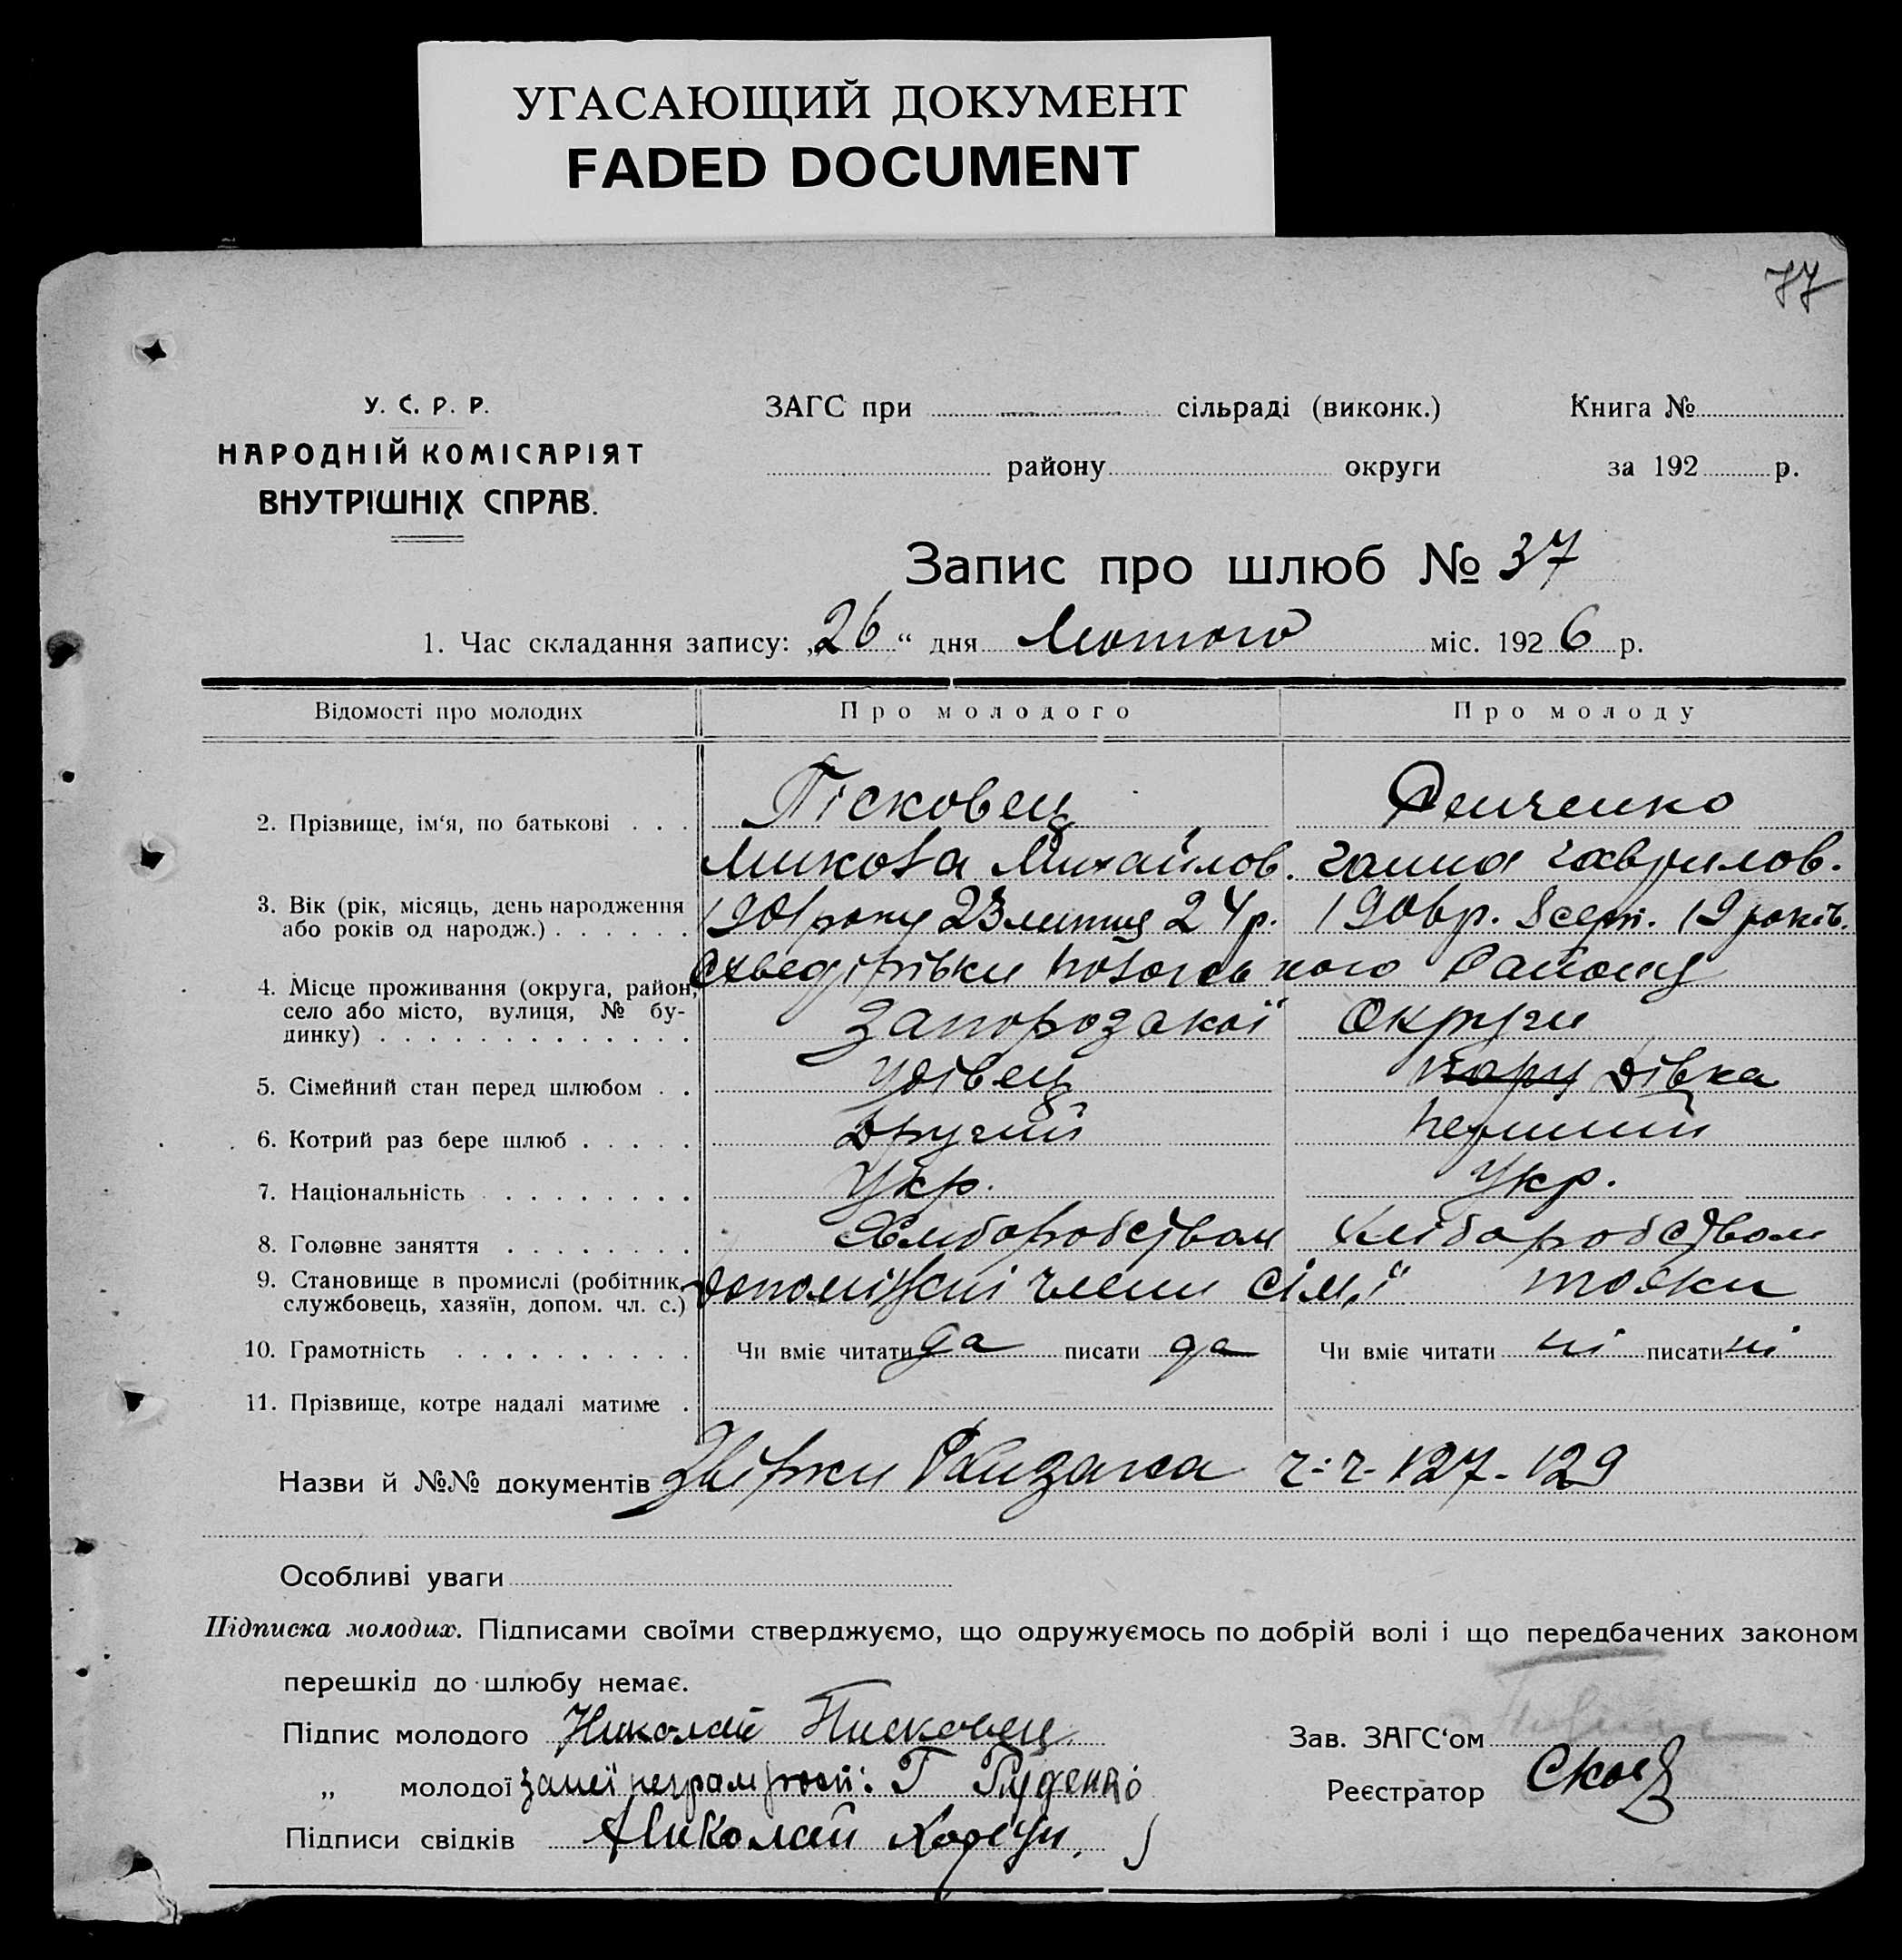 УГАСАЮЩИЙ ДОКУМЕНТ
FADED DOCUMENT
77
У. С. Р. Р.
НАРОДНІЙ КОМІСАРІЯТ
ВНУТРІШНІХ СПРАВ.
ЗАГС при сільраді (виконк.) Книга №
району округи за 192 р.
Запис про шлюб № 37
1. Час складання запису: „26“ дня Лютого міс. 1926 р.
Відомості про молодих Про молодого Про молоду
2. Прізвище, ім‘я, по батькові . . . Пісковец
Микола Михайлов. Ганна Гаврилов.
3. Вік (рік, місяць, день народження
або років од народж.) . . . . . . 1901 року 23 липця 24 р. 1906 р. 8 серп. 19 років.
4. Місце проживання (округа, район, село або місто, вулиця, № будинку) . . . . . . . . . . . . . району
Запорозької Округи
5. Сімейний стан перед шлюбом . . Удівец дівка
6. Котрий раз бере шлюб . . . . . Другий первший
7. Національність . . . . . . . . Укр. Укр.
8. Головне заняття . . . . . . . . Хлиборобством Хліборобством
9. Становище в промислі (робітник, службовець, хазяїн, допом. чл. с.) допоміжні члени сім,ї
10. Грамотність . . . . . . . . . . Чи вміє читати да писати да Чи вміє читати ні писати ні
11. Прізвище, котре надалі матиме .
Назви й №№ документів ч-ч- 127-129
Особливі уваги
Підписка молодих. Підписами своїми стверджуємо, що одружуємось по добрій волі і що передбачених законом
перешкід до шлюбу немає.
Підпис молодого Николай Писковец Зав. ЗАГС‘ом
„ молодої Г Руденко Реєстратор
Підписи свідків Николай